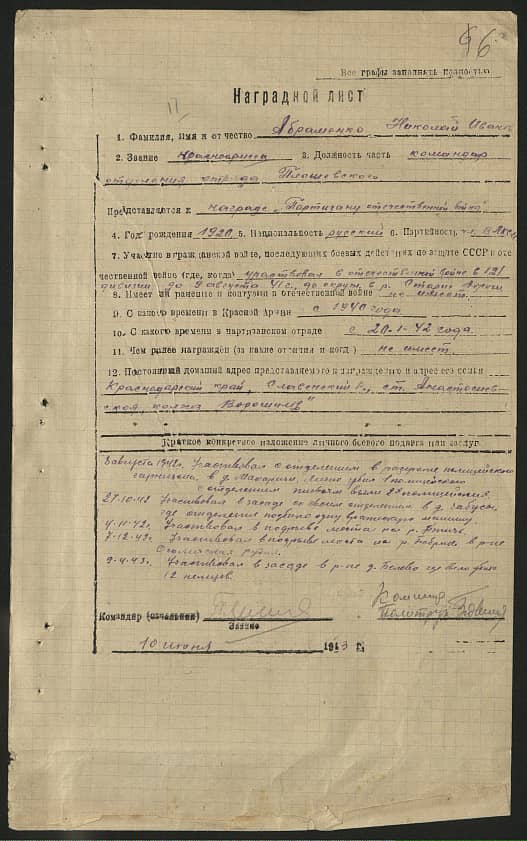 96
Все графы заполнять полностью
Наградной лист
1. Фамилия, Имя и отчество Абраменко Николай Иван
2. Звание Красноармеец 3. Должность часть командир
отделения отряда Плошевского
Представляется к награде "Партизану отечественной войны"
4. Год рождения 1920 5. Национальность русский 6. Партийность
7. Участие в гражданской войне, последующих боевых действиях по защите СССР и оте
чественной войне (где, когда) участвовал в отечественной войне в 121
дивизии до 9 августа 41 г., до окруж. в р. Старые Дороги
8. Имеет ли ранение и контузии в отечественной войне не имеет
9. С какого времени в Красной армии с 1940 года
10. С какого времени в партизанском отряде с 20-1-42 года
11. Чем ранее награждён (за какие отличия и когда) не имеет
12. Постоянный домашний адрес представляемого к награждению и адрес его семьи
Краснодарский край, Славенский р., ст. Анастасиев
ская, колхоз Ворошилов"
Краткое конкретное изложение личного боевого подвига или заслуг
8 августа 1942г. Участвовал с отделением в разгроме полицейского
гарнизона, в д. Лично убил 1 полицейского
с отделением живьем взяли 2х полицейских
27.10.42 Участвовал в засаде со своим отделением в д.
где отделение подбило одну вражескую машину.
4-11-42г. Участвовал в подрыве моста на р. Птичь.
7-12-42г. Участвовал в подрыве моста на р. в р-не
9-4-43г. Участвовал в засаде в р-не д. Белево где было убито
12 немцев.
Командир (начальник)
Звание
Политрук
10 июня 1943 г.